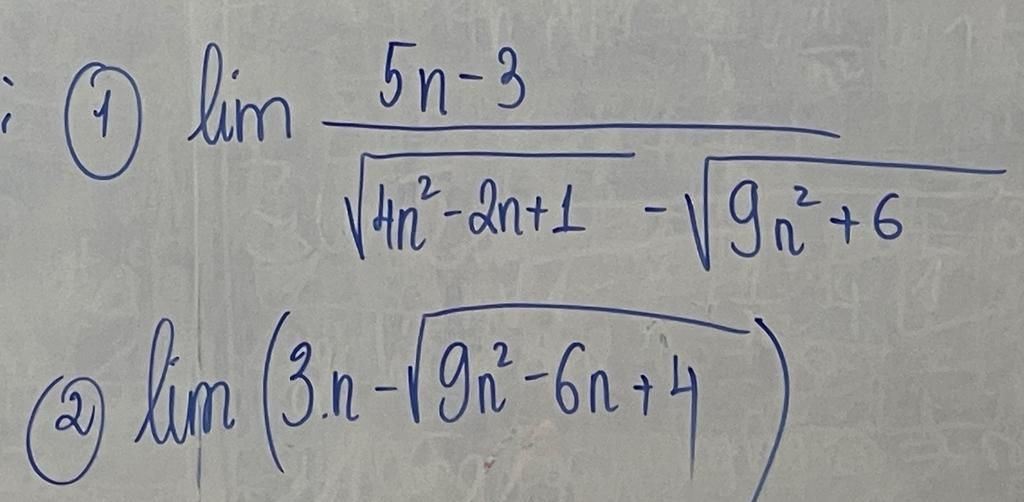 ① lim (5n-3)/(√(4n²-2n+1) - √(9n²+6))
② lim (3.n-√(9n²-6n+4))